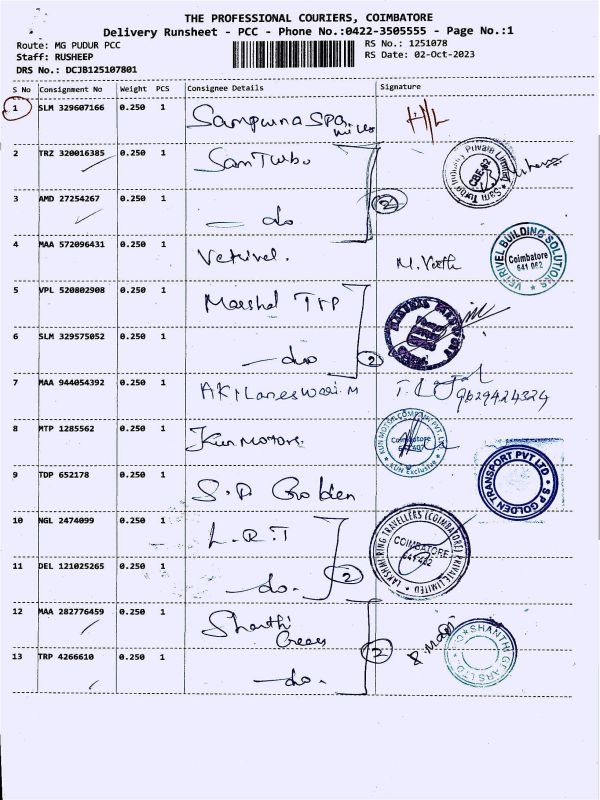 THE PROFESSIONAL COURIERS, COIMBATORE
Delivery Runsheet - PCC - Phone No.:0422-3505555 - Page No.:1
Route: MG PUDUR PCC
RS No.: 1251078
Staff: RUSHEEP
RS Date: 02-Oct-2023
DRS No.: DCJB125107801
S No Consignment No Weight PCS Consignee Details Signature
1 SLM 329607166 0.250 1 Sampurna SPG H/L
2 TRZ 320016385 0.250 1 Sam Turbo
Sam Turbo Industry Private Limited CBE-62
3 AMD 27254267 0.250 1 do 2
4 MAA 572096431 0.250 1 Vetrivel.
VETRIVEL BUILDING SOLUTIONS Coimbatore 641 062
5 VPL 520802908 0.250 1 Marshal
6 SLM 329575052 0.250 1 do 2
7 MAA 944054392 0.250 1 9629424324
8 MTP 1285562 0.250 1 Kun Motors.
KUN MOTOR COMPANY PVT. LTD Coimbatore KUN Exclusive
9 TDP 652178 0.250 1 S.P Golden
S P GOLDEN TRANSPORT PVT LTD
10 NGL 2474099 0.250 1 L.R.T
LAKSHMI RING TRAVELLERS (COIMBATORE) PRIVATE LIMITED COIMBATORE 641 402
11 DEL 121025265 0.250 1 do. 2
12 MAA 282776459 0.250 1 Shanthi Gears 2
SHANTHI GEARS LTD
13 TRP 4266610 0.250 1 do.